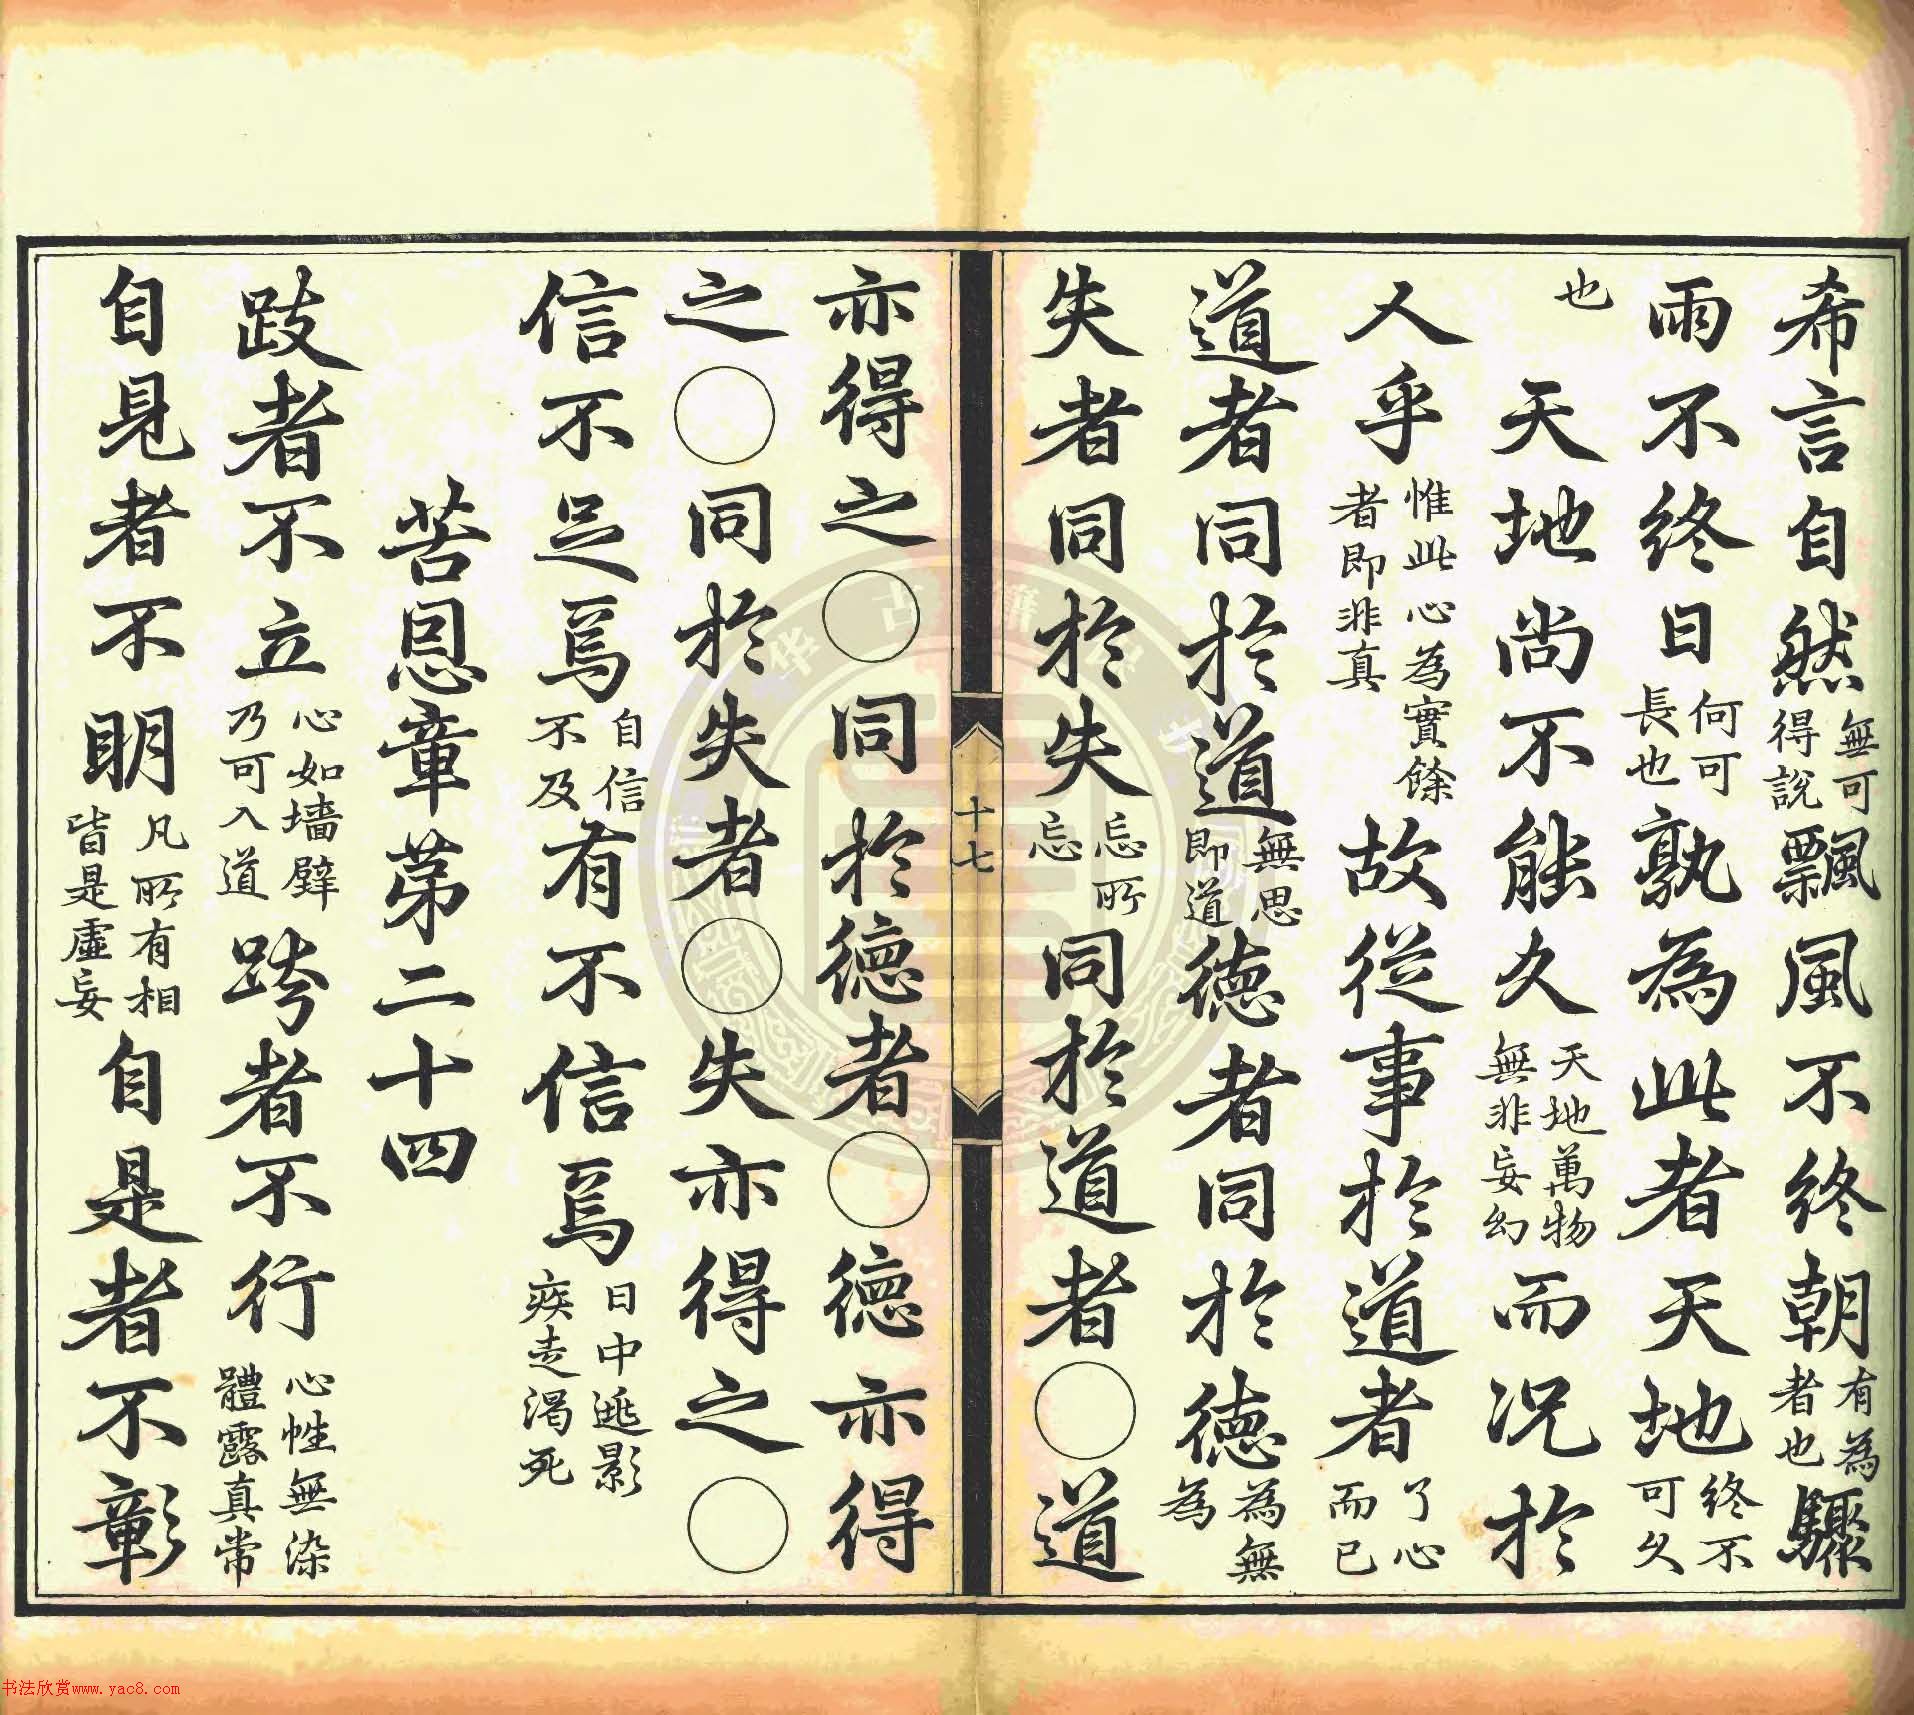 希言自然無可得說飄風不終朝有為者也驟
雨不終日何可長也孰為此者天地終不可久
也
天地尚不能久天地萬物無非妄幻而況於
人乎惟此心為實餘者即非真故從事於道者了心而已
道者同於道無思即道德者同於德為無為
失者同於失忘所忘同於道者○道
十七
亦得之○同於德者○德亦得
之○同於失者○失亦得之○
信不足焉自信不及有不信焉日中逃影疾走渴死
苦恩章苐二十四
跂者不立心如墻壁乃可入道跨者不行心性無染體露真常
自見者不明凡所有相皆是虛妄自是者不彰
书法欣赏www.yac8.com